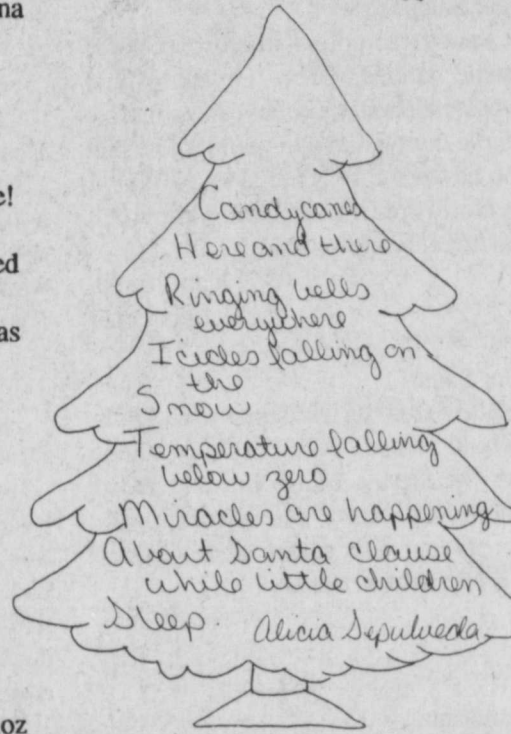 na
e!
ed
as
Candycanes
Here and there
Ringing bells
everywhere
Icicles falling on
the
Snow
Temperature falling
below zero
Miracles are happening
About Santa clause
while little children
Sleep.
Alicia Sepulveda
oz